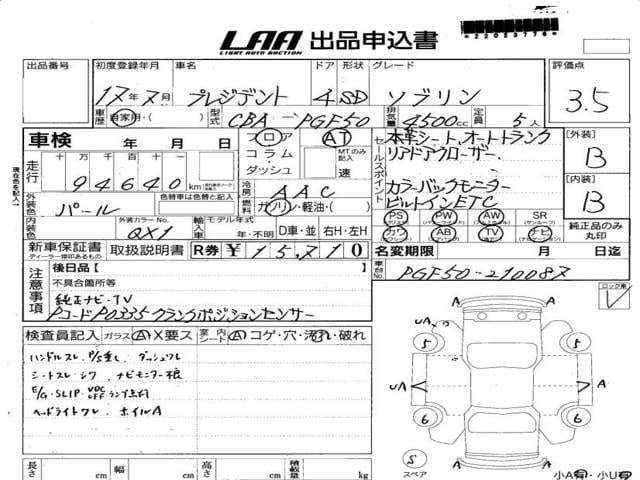 LAA 出品申込書
LIGHT AUTO AUCTION
*22023776*
出品番号 初度登録年月 車名 ドア 形状 グレード 評価点
17年7月 プレジデント 4 SD ソブリン 3.5
車歴 自家用・( ) 型式 CBA-PGF50 排気量 4500cc 定員 5人
車検 年 月 日 フロア AT 本革シート、オートトランク 【外装】
コラム MTのみ記入 セールスポイント リアドアクローザー. B
走行 十 万 千 百 十 ダッシュ 速
94640km 冷房 AAC カラーバックモニター 【内装】
色替車は色替と記入 燃料 ガソリン・軽油・( ) ビルトインETC B
外装色 パール
PS PW AW SR 純正品のみ丸印
内装色 外装カラーNo. QX1 輸入車 モデル年式 年・不明 D車・並 右H・左H カワ AB TV ナビ
新車保証書 取扱説明書 R券 ¥15,710 名変期限 月 日迄
ディーラー捺印あるもの
車台No. PGF50-210087
現在色を記入
注意事項 後日品【 】 ロック車
不具合箇所等 V
純正ナビ・TV
Pコード P0335 クランクポジションセンサー
検査員記入 ガラス A X要ス 室内 シート A コゲ・穴・汚れ・破れ
ハンドルスレ. ダッシュワレ
シートスレ・シワ ナビモニター根
E/G・SLIP・VDC OFF ランプ点灯
ヘッドライトワレ ホイルA
UA A
5 5
UA A
6 6
S
スペア
A
長さ cm 幅 cm 高さ cm 積載量 kg 小A有・小U有